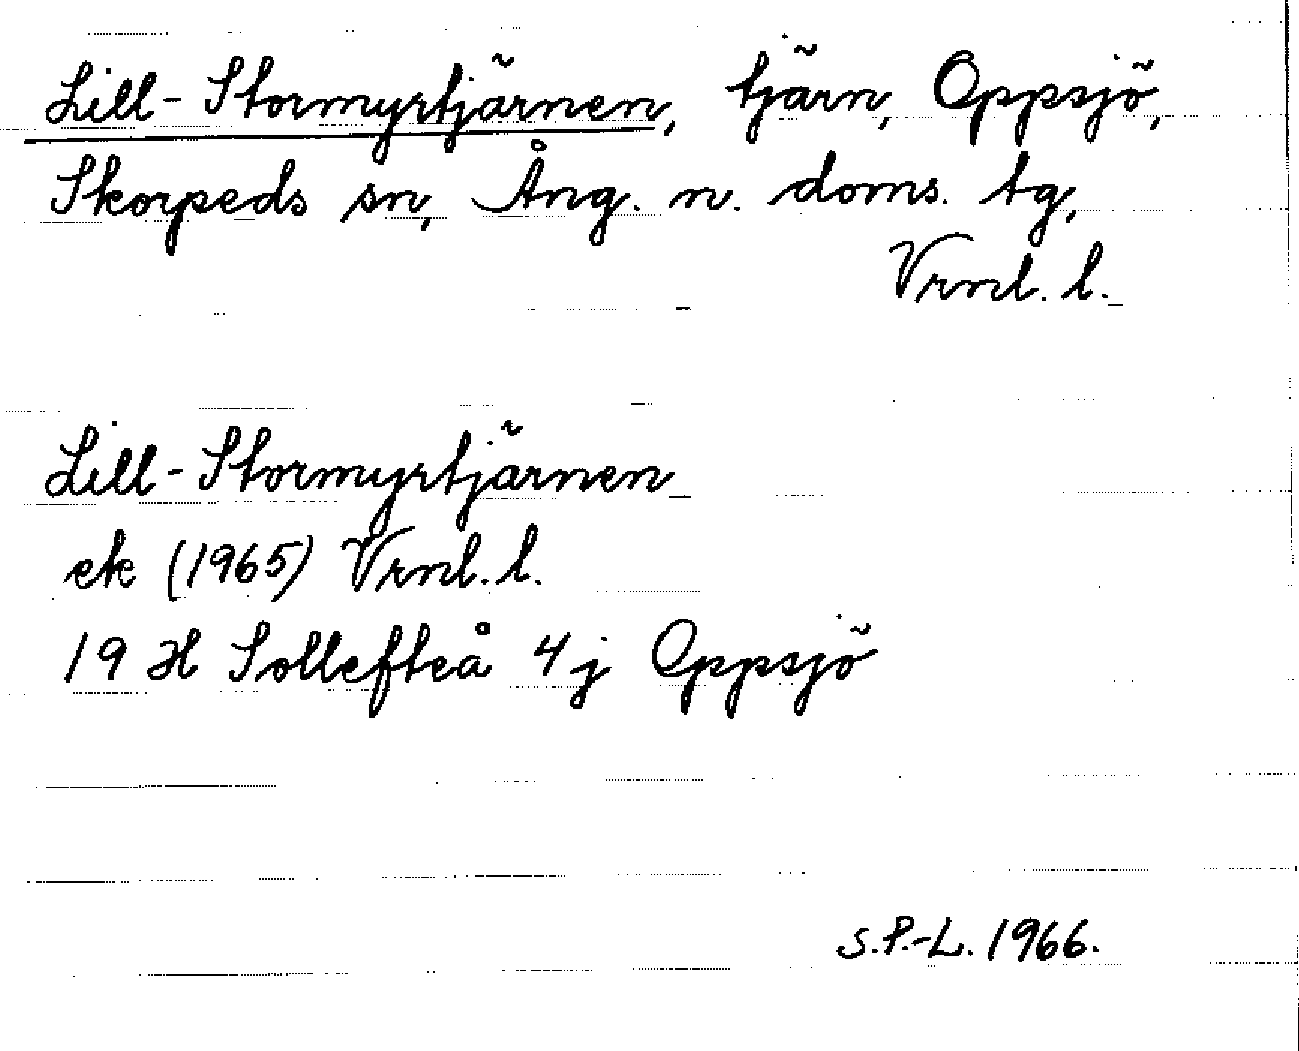 Lill-Stormyrtjärnen, tjärn, Oppsjö,
Skorpeds sn, Ång. n. doms. tg,
Vrml. l.
Lill-Stormyrtjärnen
ek (1965) Vrml. l.
19 H Sollefteå 4j Oppsjö
S.P.-L. 1966.